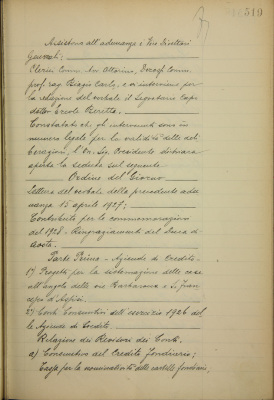 519
Assistono all'adunanza i Vice Direttori
Generali:
Clerici Comm. Avv. Ottorino,
prof. rag. Biagio Carlo, e vi interviene per
la relazione del verbale il Segretario Capo
dottor Ercole Beretta.
Constatato che gli intervenuti sono in
numero legale per la validità delle deli
berazioni, l'On. Sig. Presidente dichiara
aperta la seduta sul seguente
Ordine del Giorno
Lettura del verbale della precedente adu
nanza 15 aprile 1927:
Contributo per le commemorazioni
del 1928 - Ringraziamenti del Duca di
Aosta.
Parte Prima - Aziende di Credito -
1) Progetto per la sistemazione delle case
all'angolo delle vie Barbarossa e S. Fran
cesco d'Assisi.
2) Conti Consuntivi dell'esercizio 1926 del
le Aziende di Credito.
Relazioni dei Revisori dei Conti.
a) Consuntivo del Credito Fondiario;
Tassa per la nominatività delle cartelle fondiarie;